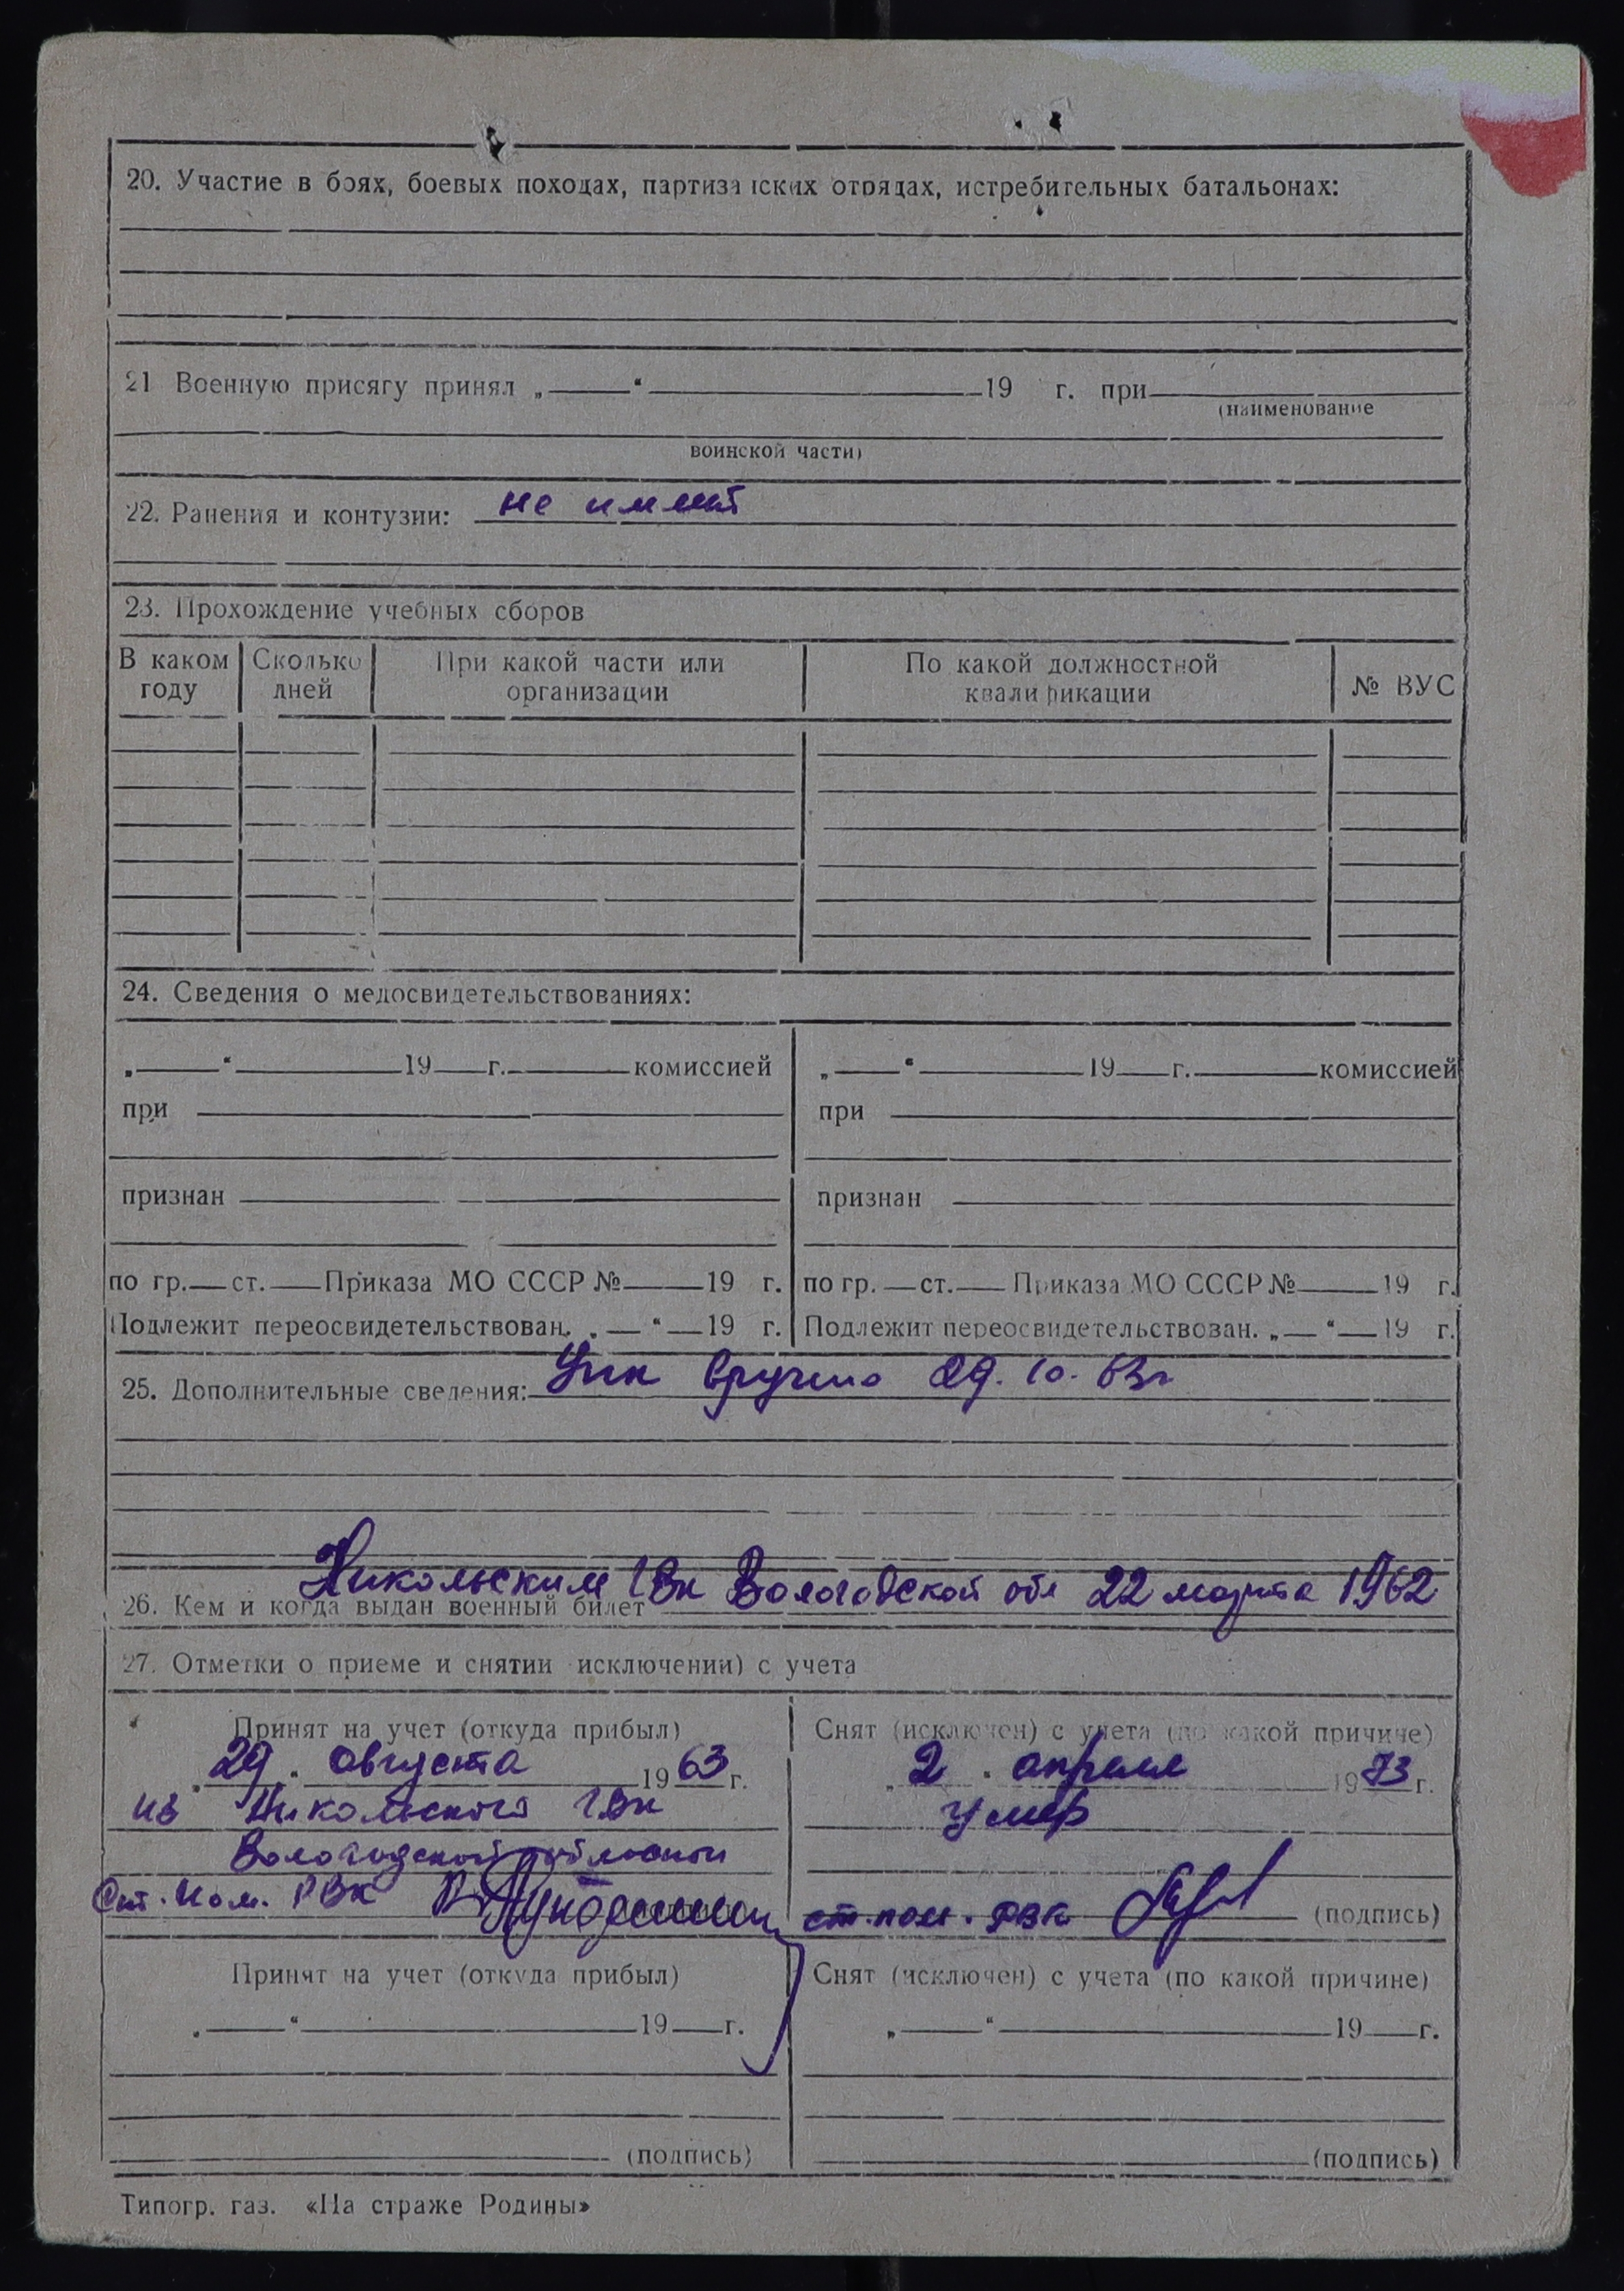 20. Участие в боях, боевых походах, партизанских отрядах, истребительных батальонах:
21 Военную присягу принял „ “ 19 г. при
(наименование
воинской части)
22. Ранения и контузии: не имеет
23. Прохождение учебных сборов
В каком году
Сколько дней
При какой части или организации
По какой должностной квалификации
№ ВУС
24. Сведения о медосвидетельствованиях:
„ “ 19 г. комиссией
при
признан
по гр. ст. Приказа МО СССР № 19 г.
Подлежит переосвидетельствован. „ “ 19 г.
„ “ 19 г. комиссией
при
признан
по гр. ст. Приказа МО СССР № 19 г.
Подлежит переосвидетельствован. „ “ 19 г.
25. Дополнительные сведения: вручено 29.10.63г
26. Кем и когда выдан военный билет Никольским Вологодской обл 22 марта 1962
27. Отметки о приеме и снятии исключении) с учета
Принят на учет (откуда прибыл)
„29“ августа 1963 г.
из Никольского
Вологодской области
Ст. пом. РВК
Снят (исключен) с учета (по какой причине)
„2“ апреля 1973 г.
умер
ст. пом. РВК (подпись)
Принят на учет (откуда прибыл)
„ “ 19 г.
(подпись)
Снят (исключен) с учета (по какой причине)
„ “ 19 г.
(подпись)
Типогр. газ. «На страже Родины»